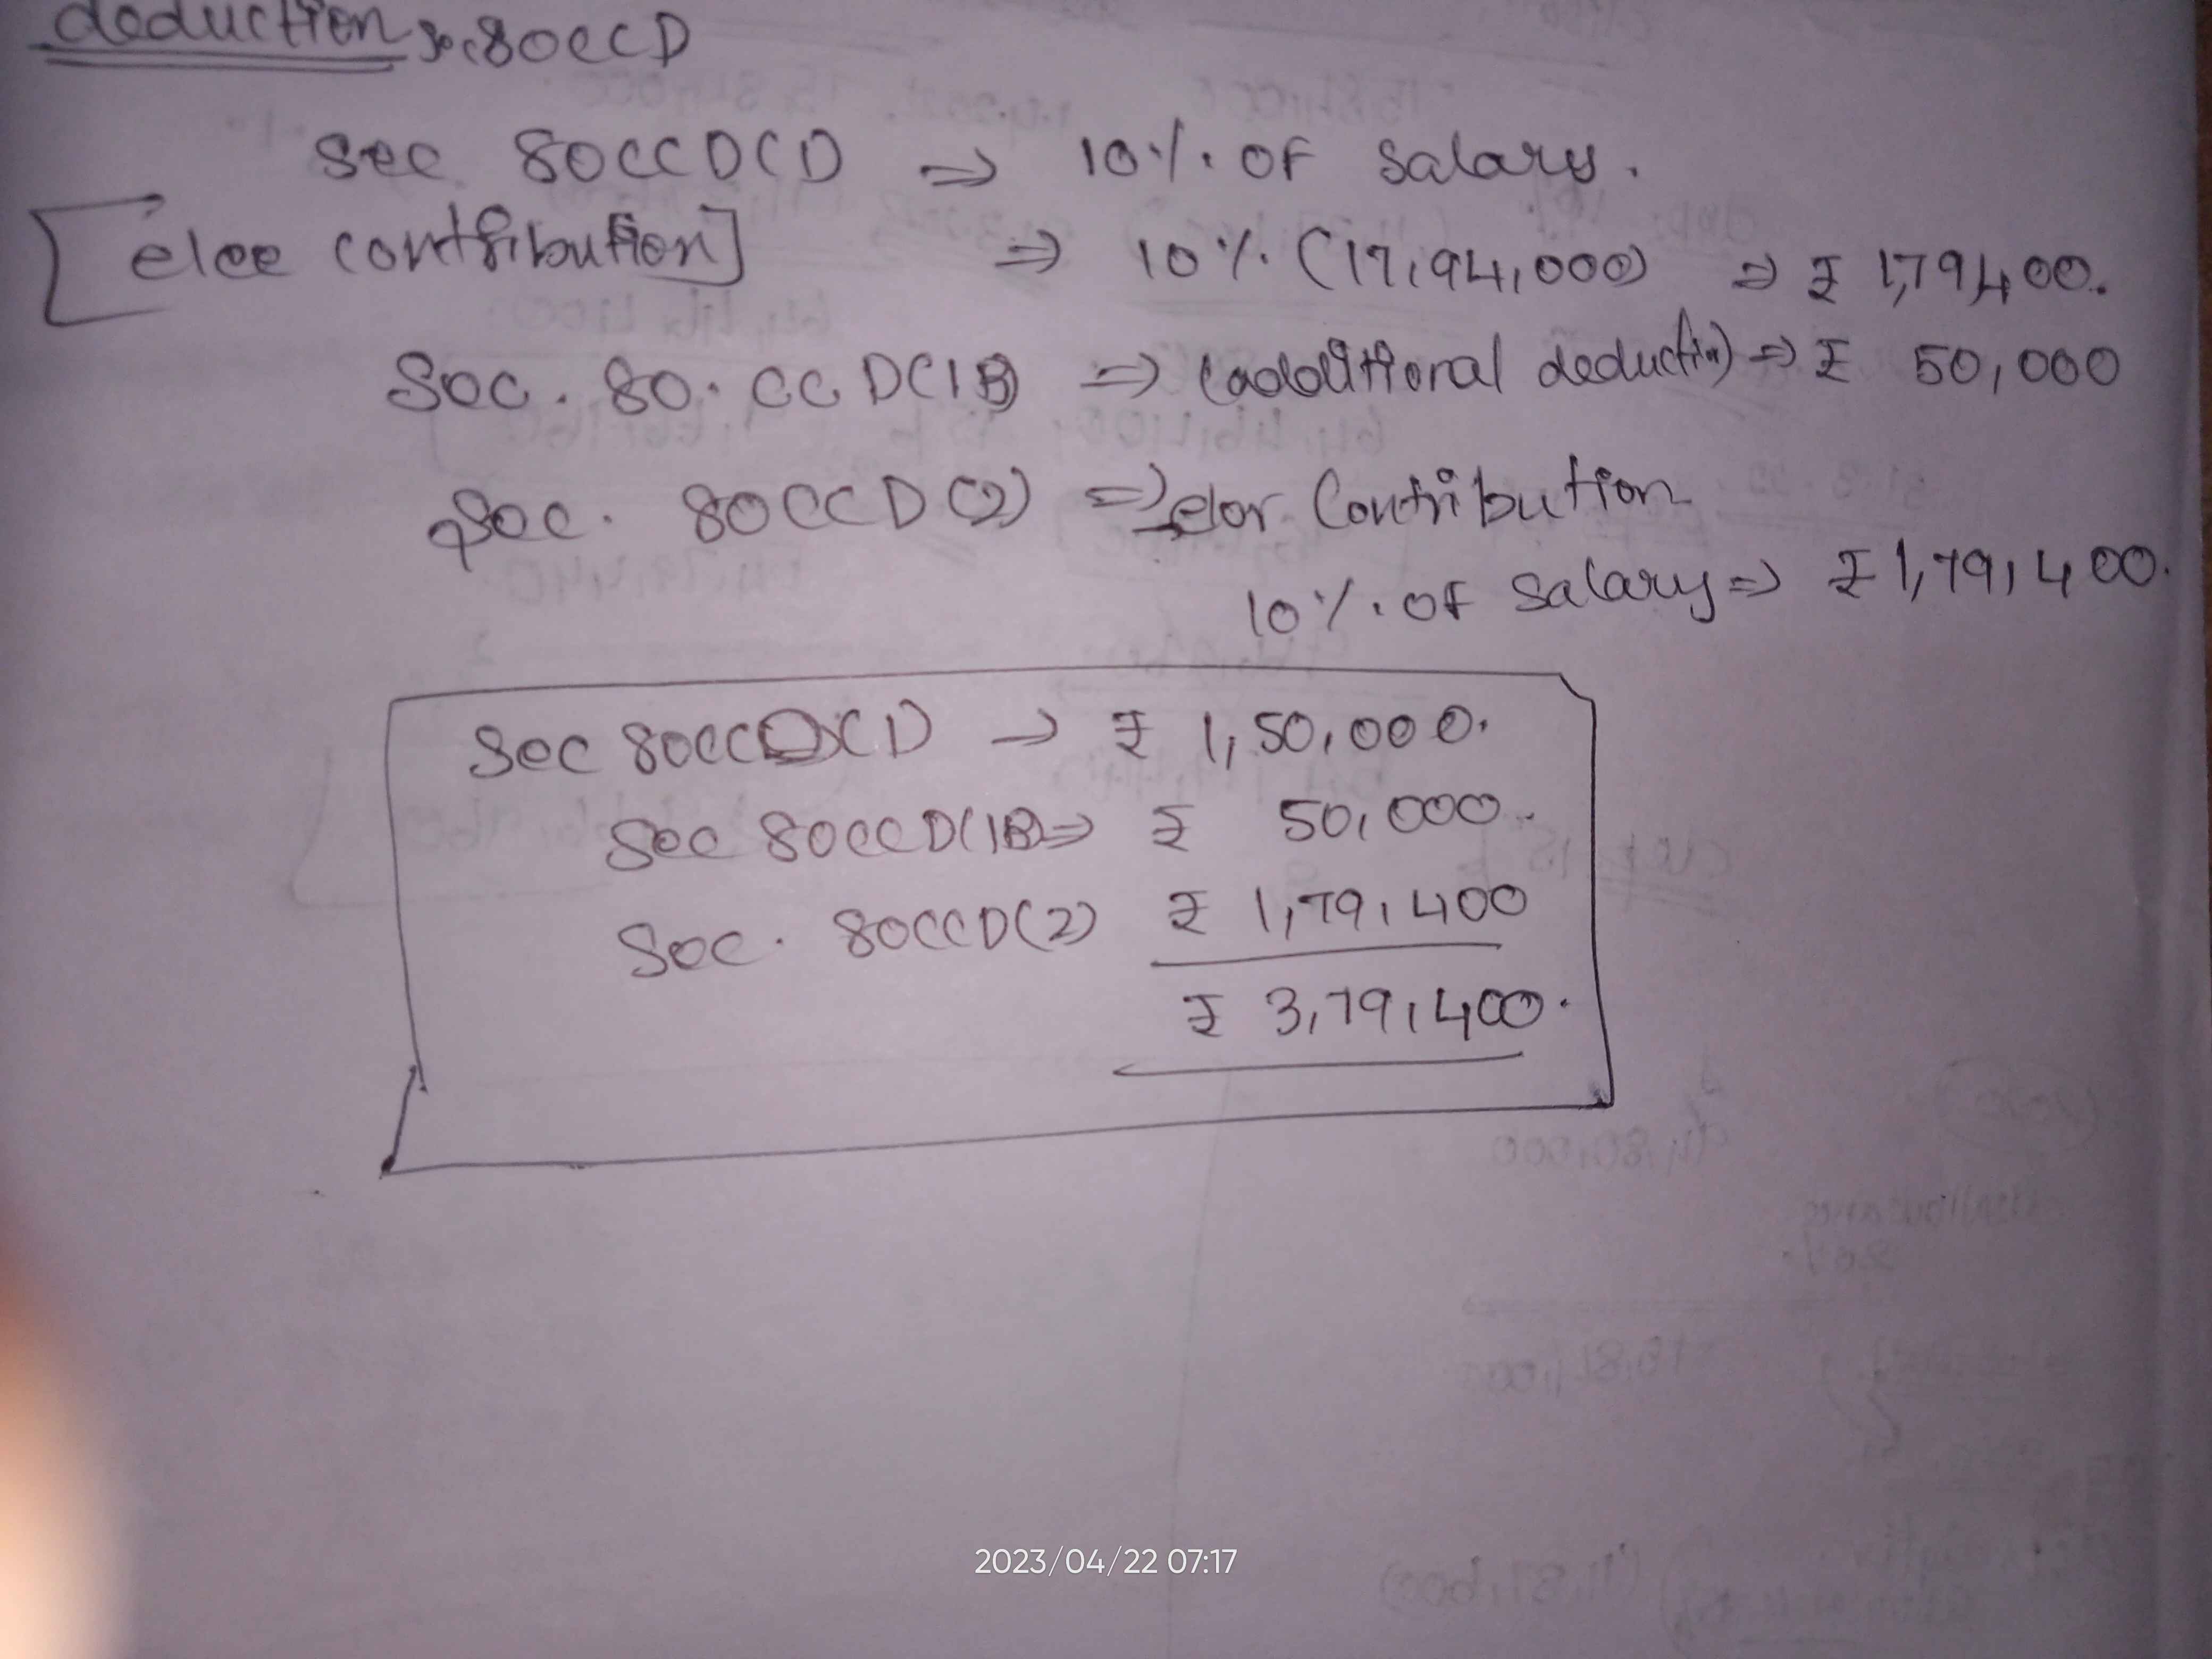 deduction Sec 80CCD
Sec 80CCD(1) ⇒ 10% of Salary.
[elee contribution] ⇒ 10% (17,94,000) ⇒ ₹ 1,79,400.
Sec. 80. CCD(1B) ⇒ (additional deduction) ⇒ ₹ 50,000
Sec. 80CCD(2) ⇒ elor Contribution
10% of Salary ⇒ ₹ 1,79,400.
Sec 80CCD(1) → ₹ 1,50,000.
Sec 80CCD(1B) ⇒ ₹ 50,000.
Sec. 80CCD(2) ₹ 1,79,400
₹ 3,79,400.
2023/04/22 07:17